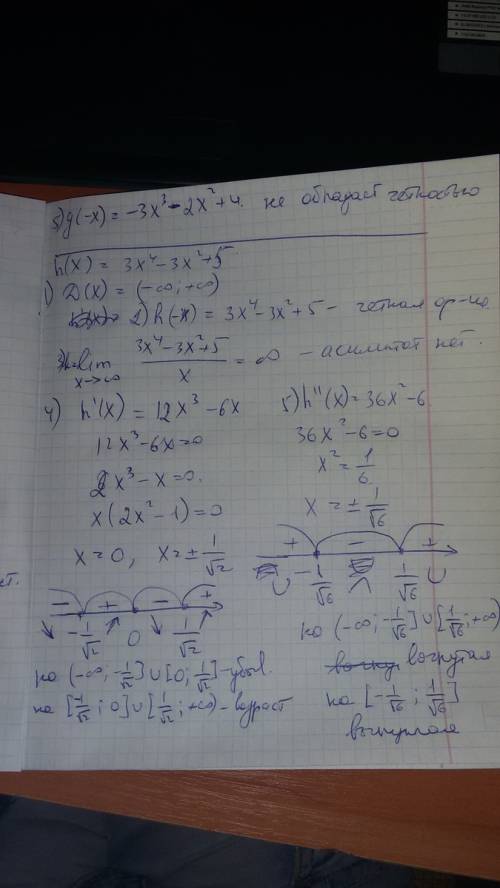 5) g(-x) = -3x³ - 2x² + 4. не обладает четностью
h(x) = 3x⁴ - 3x² + 5
1) D(x) = (-∞; +∞)
2) h(-x) = 3x⁴ - 3x² + 5 - четная ф-ция.
3) k = lim x→∞ (3x⁴ - 3x² + 5)/x = ∞ - асимптот нет.
4) h'(x) = 12x³ - 6x
12x³ - 6x = 0
2x³ - x = 0.
x(2x² - 1) = 0
x = 0, x = ± 1/√2
- + - +
-1/√2 0 1/√2
на (-∞; -1/√2] ∪ [0; 1/√2] - убыв.
на [-1/√2; 0] ∪ [1/√2; +∞) - возраст
5) h''(x) = 36x² - 6
36x² - 6 = 0
x² = 1/6
x = ± 1/√6
+ - +
-1/√6 1/√6
на (-∞; -1/√6] ∪ [1/√6; +∞)
вогнутая
на [-1/√6; 1/√6]
выпуклая